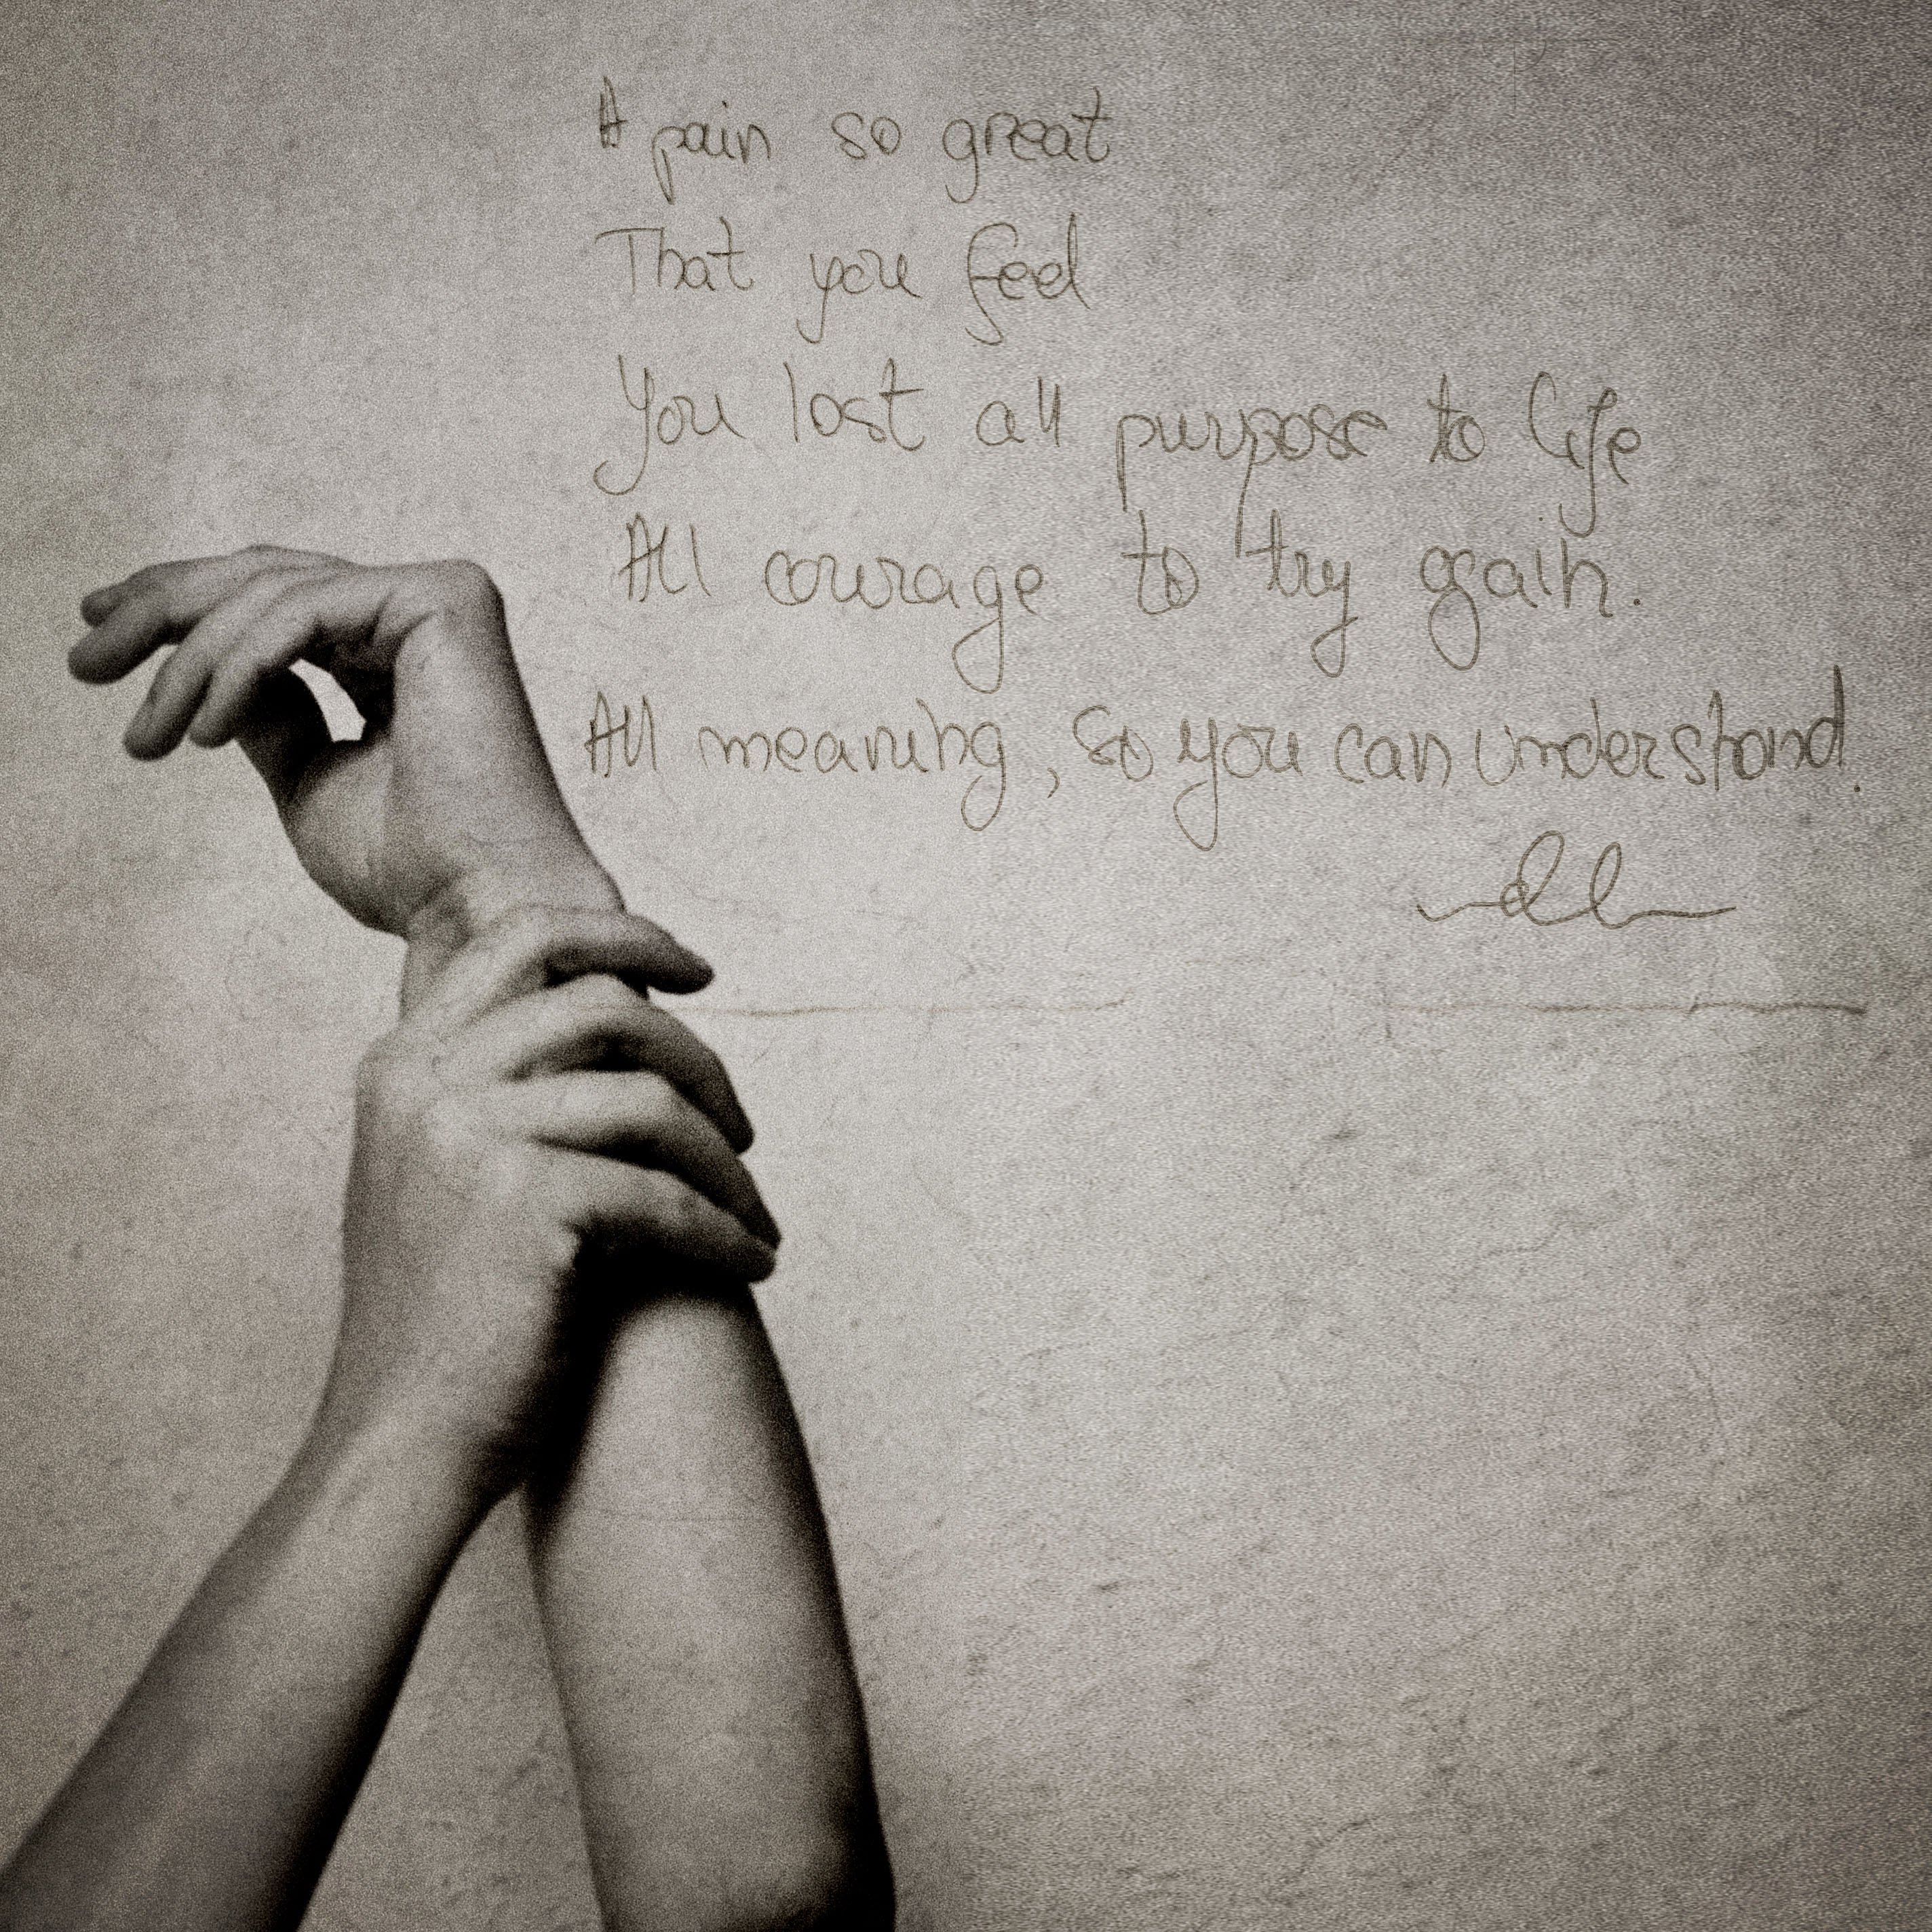 A pain so great
That you feel
You lost all purpose to life
All courage to try again.
All meaning, so you can understand.